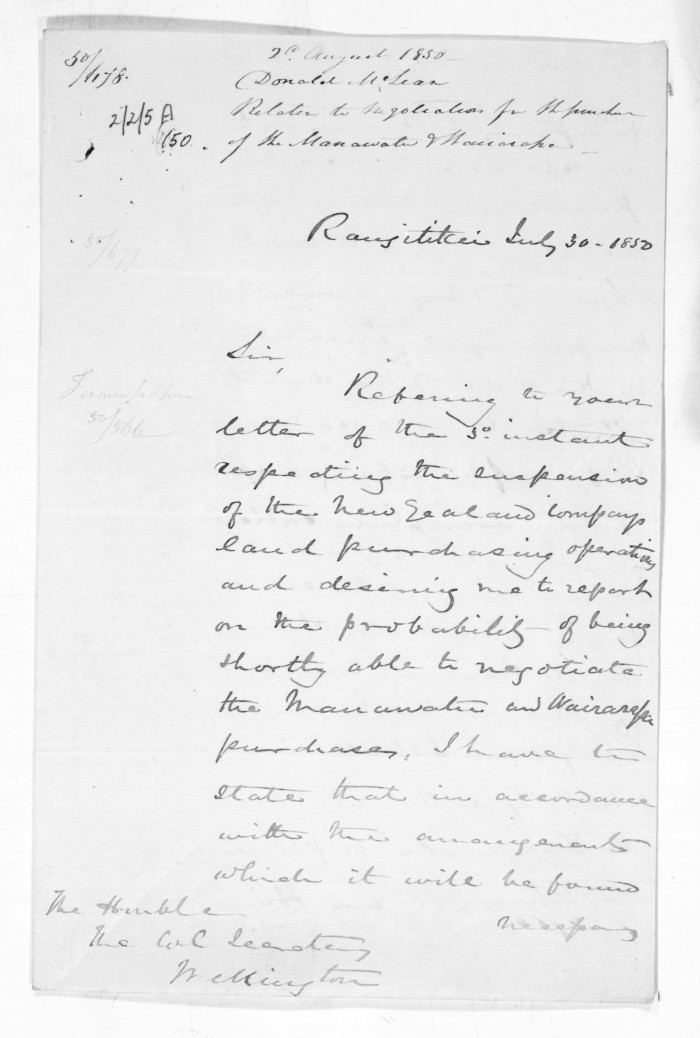 50/678.
2d. August 1850
Donald McLean
Relates to negotiations for the purchase
of the Manawatu & Wairarapa
2/2/5 A
/50.
50/677
Rangitikei July 30 - 1850
Sir,
50/566
Refering to your
letter of the 3d. instant
respecting the suspension
of the New Zealand Compays
land purchasing operations
and desiring me to report
on the probability of being
shortly able to negotiate
the Manawatu and Wairarapa
purchases, I have to
state that in accordance
with the arrangements
which it will be found
necessary
The Honble
The Col Secretary
Wellington